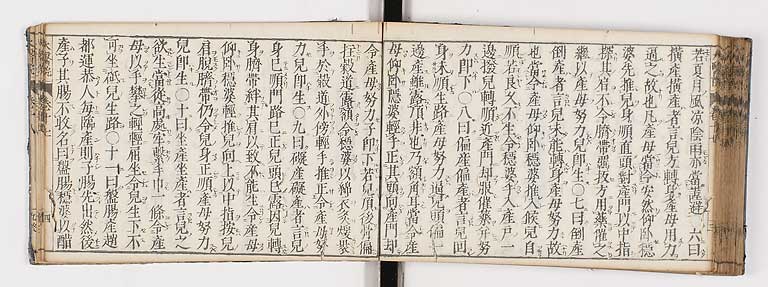 若夏月風涼陰雨亦當謹避 六曰
橫產橫產者言兒方轉身產母用力
逼之故也凡產母當令安然仰臥穩
婆先推兒身順直頭對產門以中指
探其肩不令臍帶羈扳方用藥催之
繼以產母努力兒即生〇七曰倒產
倒產者言兒未能轉身產母努力故
也當令產母仰臥穩婆推入候兒自
順若良久不生令穩婆手入產戶一
邊撥兒轉順近產門却服催藥并努
力即下〇八曰偏產偏產者言兒回
身未順生路產母努力逼兒頭偏一
邊產雖露頂非也乃額角耳當令產
母仰臥穩婆輕手正其頭向產門却
令產母努力子即下若兒頂後骨偏
拄穀道露額令穩婆以綿衣炙煖裹
手於穀道外傍輕手推正令產母努
力兒即生〇九曰礙產礙產者言兒
身已順門路已正兒頭已露因兒轉
身臍帶絆其肩以致不能生令產母
仰臥穩婆輕推兒向上以中指按兒
肩脫臍帶仍令兒身正順產母努力
兒即生〇十曰坐產坐產者言兒之
欲生當從高處牢繫手巾一條令產
母以手攀之輕輕屈坐令兒生下不
可坐砥兒生路〇十一曰盤腸產趙
都運恭人每臨產則子腸先出然後
產子其腸不收名曰盤腸穩婆以醋